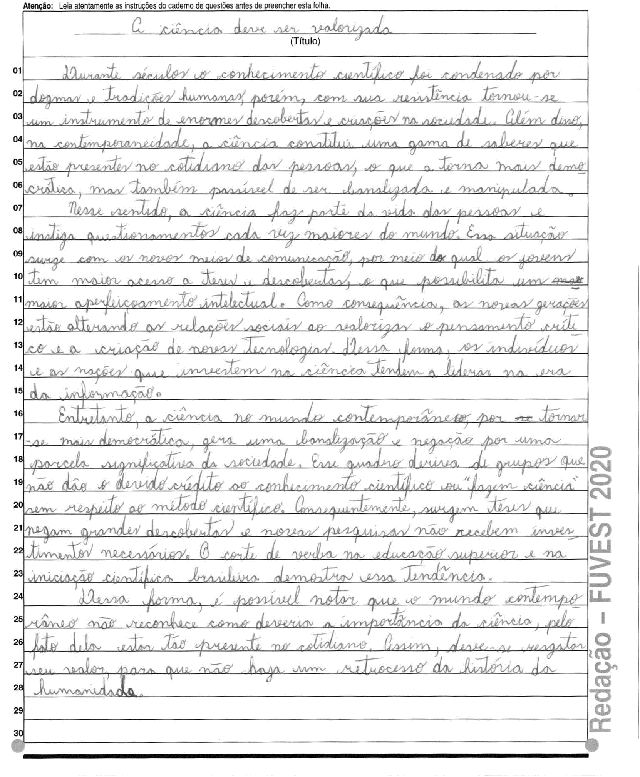 Atenção: Leia atentamente as instruções do caderno de questões antes de preencher esta folha.
A ciência deve ser valorizada
(Título)
01 Durante séculos o conhecimento científico foi condenado por
02 dogmas e tradições humanas, porém, com sua resistência tornou-se
03 um instrumento de enormes descobertas e criações na sociedade. Além disso,
04 na contemporaneidade, a ciência constitui uma gama de saberes que
05 estão presentes no cotidiano das pessoas, o que a torna mais demo
06 crática, mas também passível de ser banalizada e manipulada.
07 Nesse sentido, a ciência faz parte da vida das pessoas e
08 instiga questionamentos cada vez maiores do mundo. Essa situação
09 surge com os novos meios de comunicação, por meio do qual os jovens
10 tem maior acesso a teses e descobertas, o que possibilita um
11 maior aperfeiçoamento intelectual. Como consequência, as novas gerações
12 estão alterando as relações sociais ao valorizar o pensamento críti
13 co e a criação de novas tecnologias. Dessa forma, os indivíduos
14 e as nações que investem na ciência tendem a liderar na era
15 da informação.
16 Entretanto, a ciência no mundo contemporâneo, por tornar
17 se mais democrática, gera uma banalização e negação por uma
18 parcela significativa da sociedade. Esse quadro deriva de grupos que
19 não dão o devido crédito ao conhecimento científico ou "fazem ciência"
20 sem respeito ao método científico. Consequentemente, surgem teses que
21 negam grandes descobertas e novas pesquisas não recebem inves
22 timentos necessários. O corte de verba na educação superior e na
23 iniciação científica brasileira demostra essa tendência.
24 Dessa forma, é possível notar que o mundo contempo
25 râneo não reconhece como deveria a importância da ciência, pelo
26 fato dela estar tão presente no cotidiano. Assim, deve-se resgatar
27 seu valor, para que não haja um retrocesso da história da
28 humanidade.
29
30
Redação – FUVEST 2020